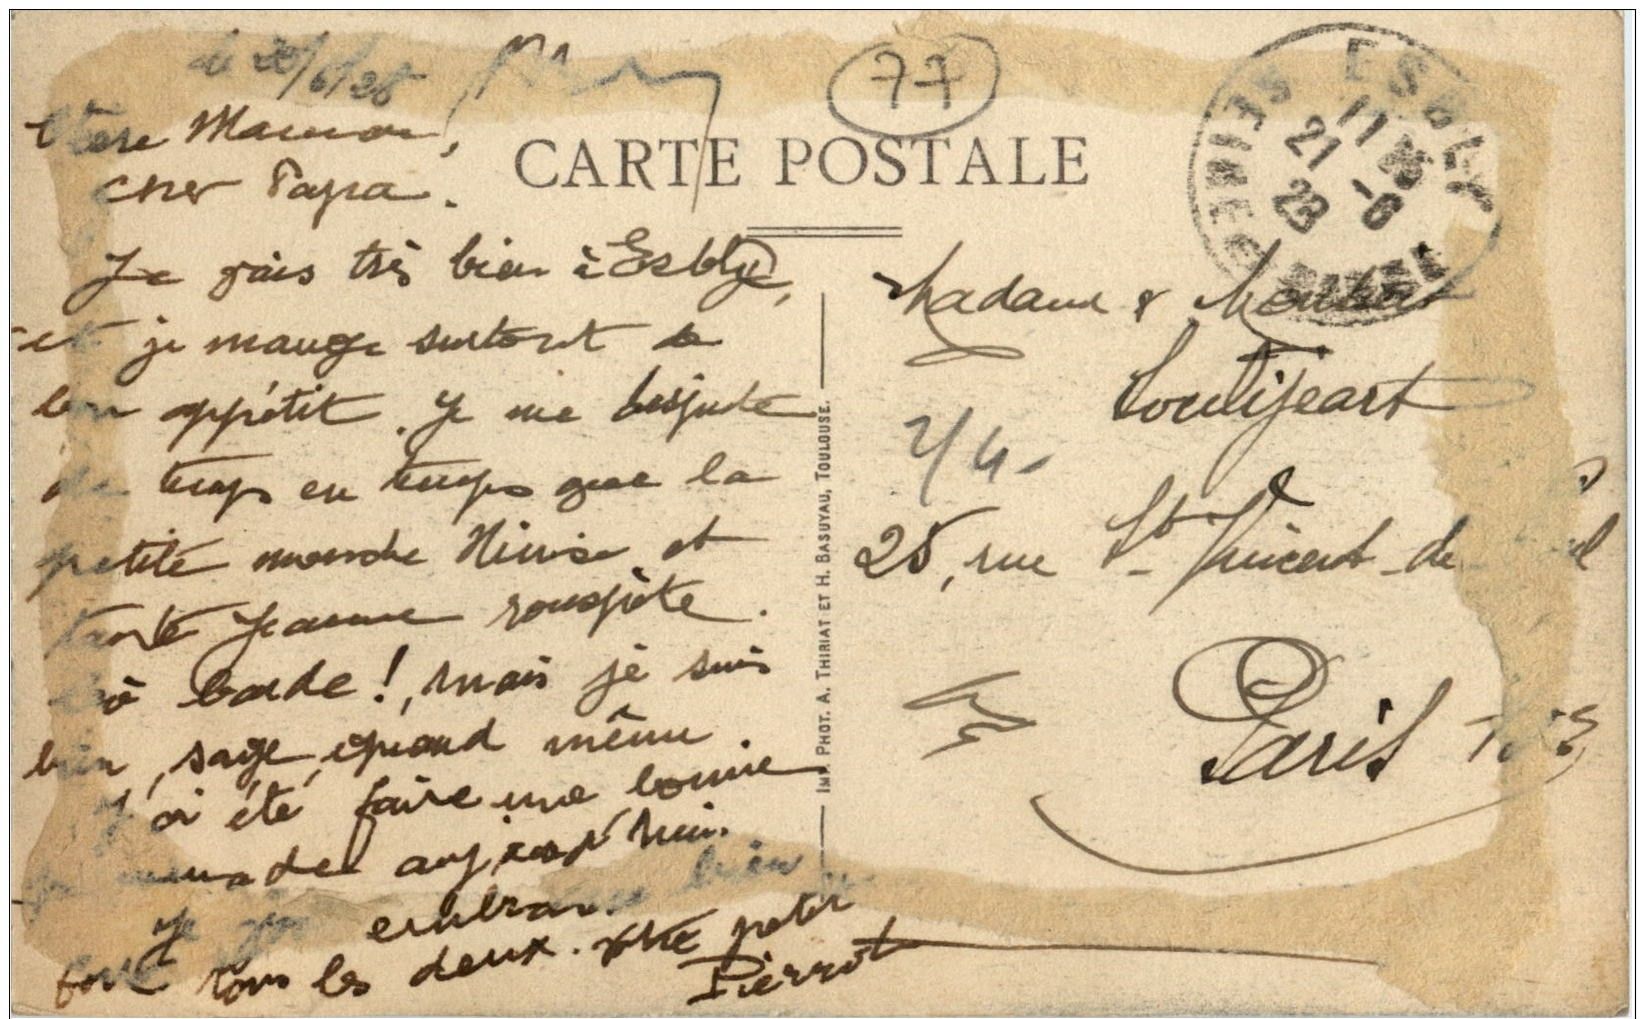 le 20/6/28
Chère Maman,
cher Papa.
Je vais très bien à Esblye,
et je mange surtout de
bon appétit. Je me
de temps en temps que la
petite Ninise et
tante Jeanne rouspète.
barde !, mais je suis
bien sage quand même.
J'ai été faire une bonne
promenade aujourd'hui.
Je vous embrasse bien
fort tous les deux. Votre petit
Pierrot
77
CARTE POSTALE
ESBLY
SEINE ET MARNE
11
21 -6
28
Madame & Monsieur
2/4-
25, rue St Vincent de
Paris
IMP. PHOT. A. THIRIAT ET H. BASUYAU, TOULOUSE.